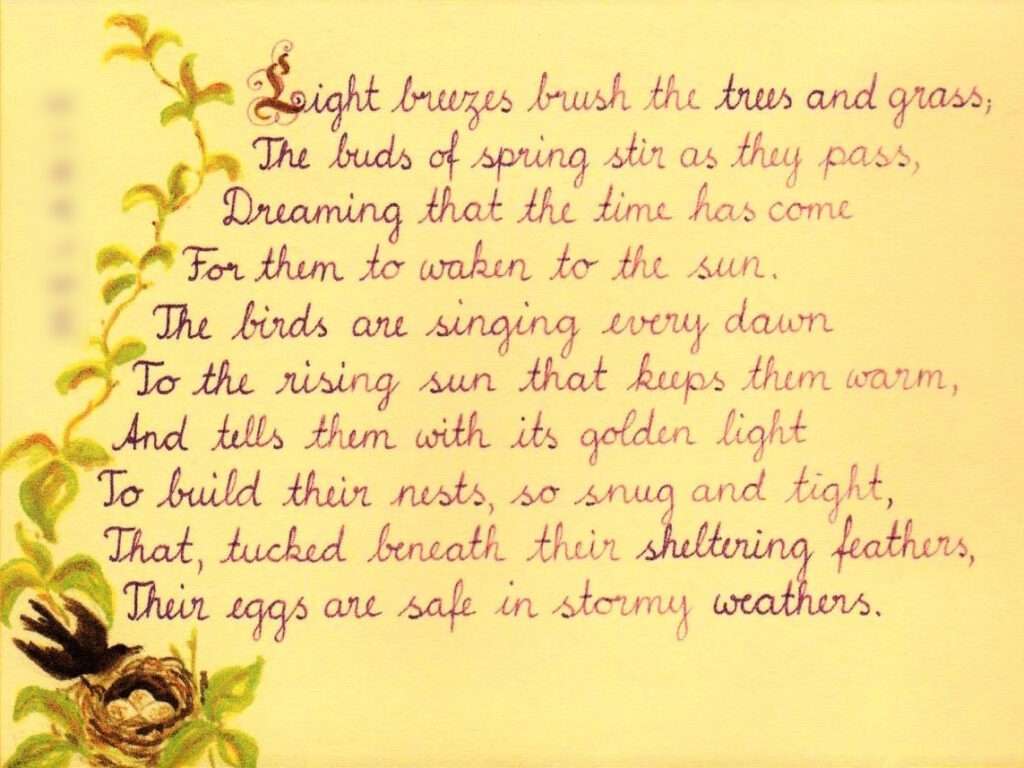 Light breezes brush the trees and grass;
The buds of spring stir as they pass,
Dreaming that the time has come
For them to waken to the sun.
The birds are singing every dawn
To the rising sun that keeps them warm,
And tells them with its golden light
To build their nests, so snug and tight,
That, tucked beneath their sheltering feathers,
Their eggs are safe in stormy weathers.